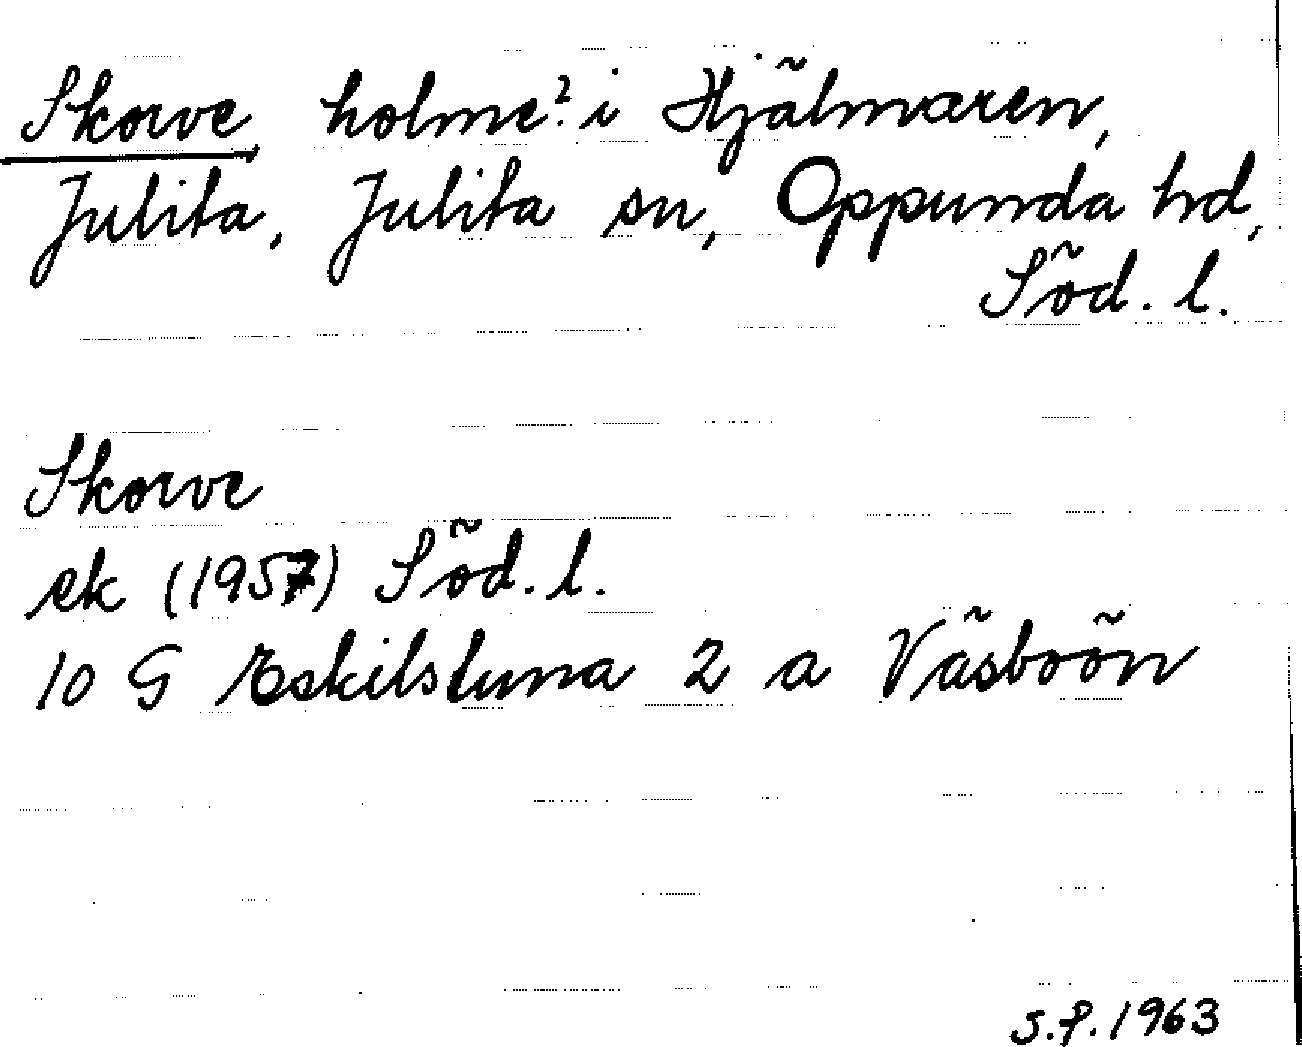 Skorve, holme? i Hjälmaren,
Julita, Julita sn, Oppunda hd,
Söd. l.
Skorve
ek (1957) Söd. l.
10 G Eskilstuna 2 a Väsboön
S.P. 1963